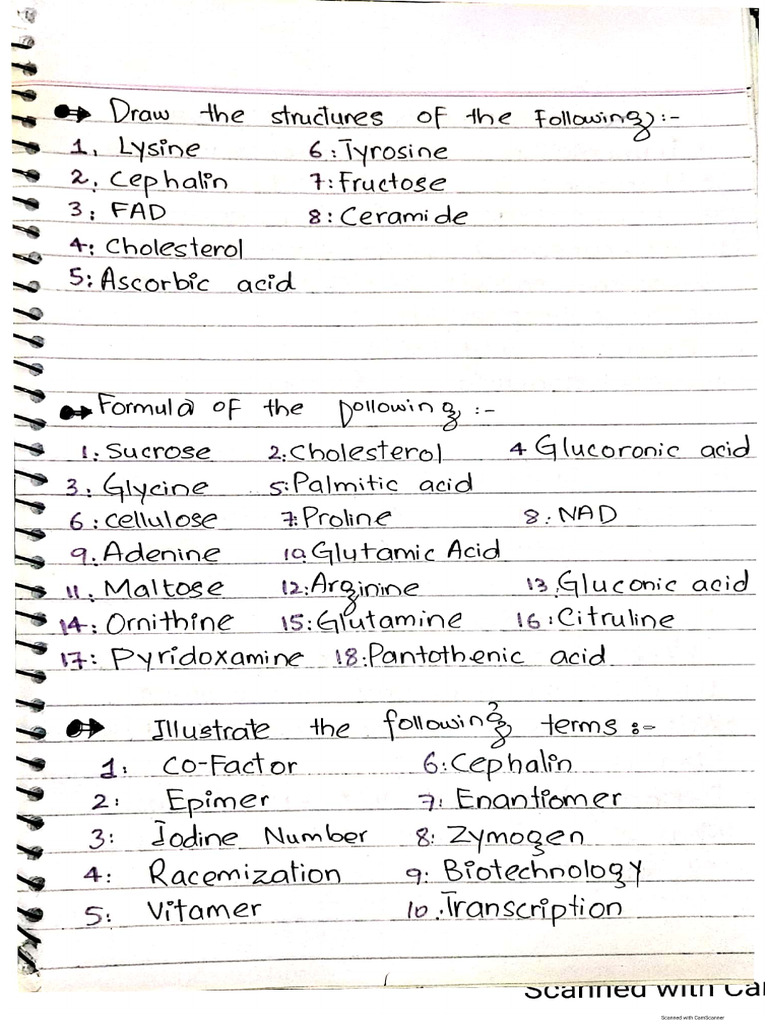 Draw the structures of the Following :-
1. Lysine 6: Tyrosine
2. Cephalin 7: Fructose
3: FAD 8: Ceramide
4: Cholesterol
5: Ascorbic acid
Formula of the Following :-
1. Sucrose 2. Cholesterol 4 Glucoronic acid
3. Glycine 5. Palmitic acid
6: cellulose 7. Proline 8. NAD
9. Adenine 10 Glutamic Acid
11. Maltose 12. Arginine 13. Gluconic acid
14: Ornithine 15: Glutamine 16: Citruline
17: Pyridoxamine 18: Pantothenic acid
Illustrate the following terms :-
1: Co-Factor 6: Cephalin
2: Epimer 7: Enantiomer
3: Iodine Number 8: Zymogen
4: Racemization 9: Biotechnology
5: Vitamer 10. Transcription
Scanned with Ca
Scanned with CamScanner